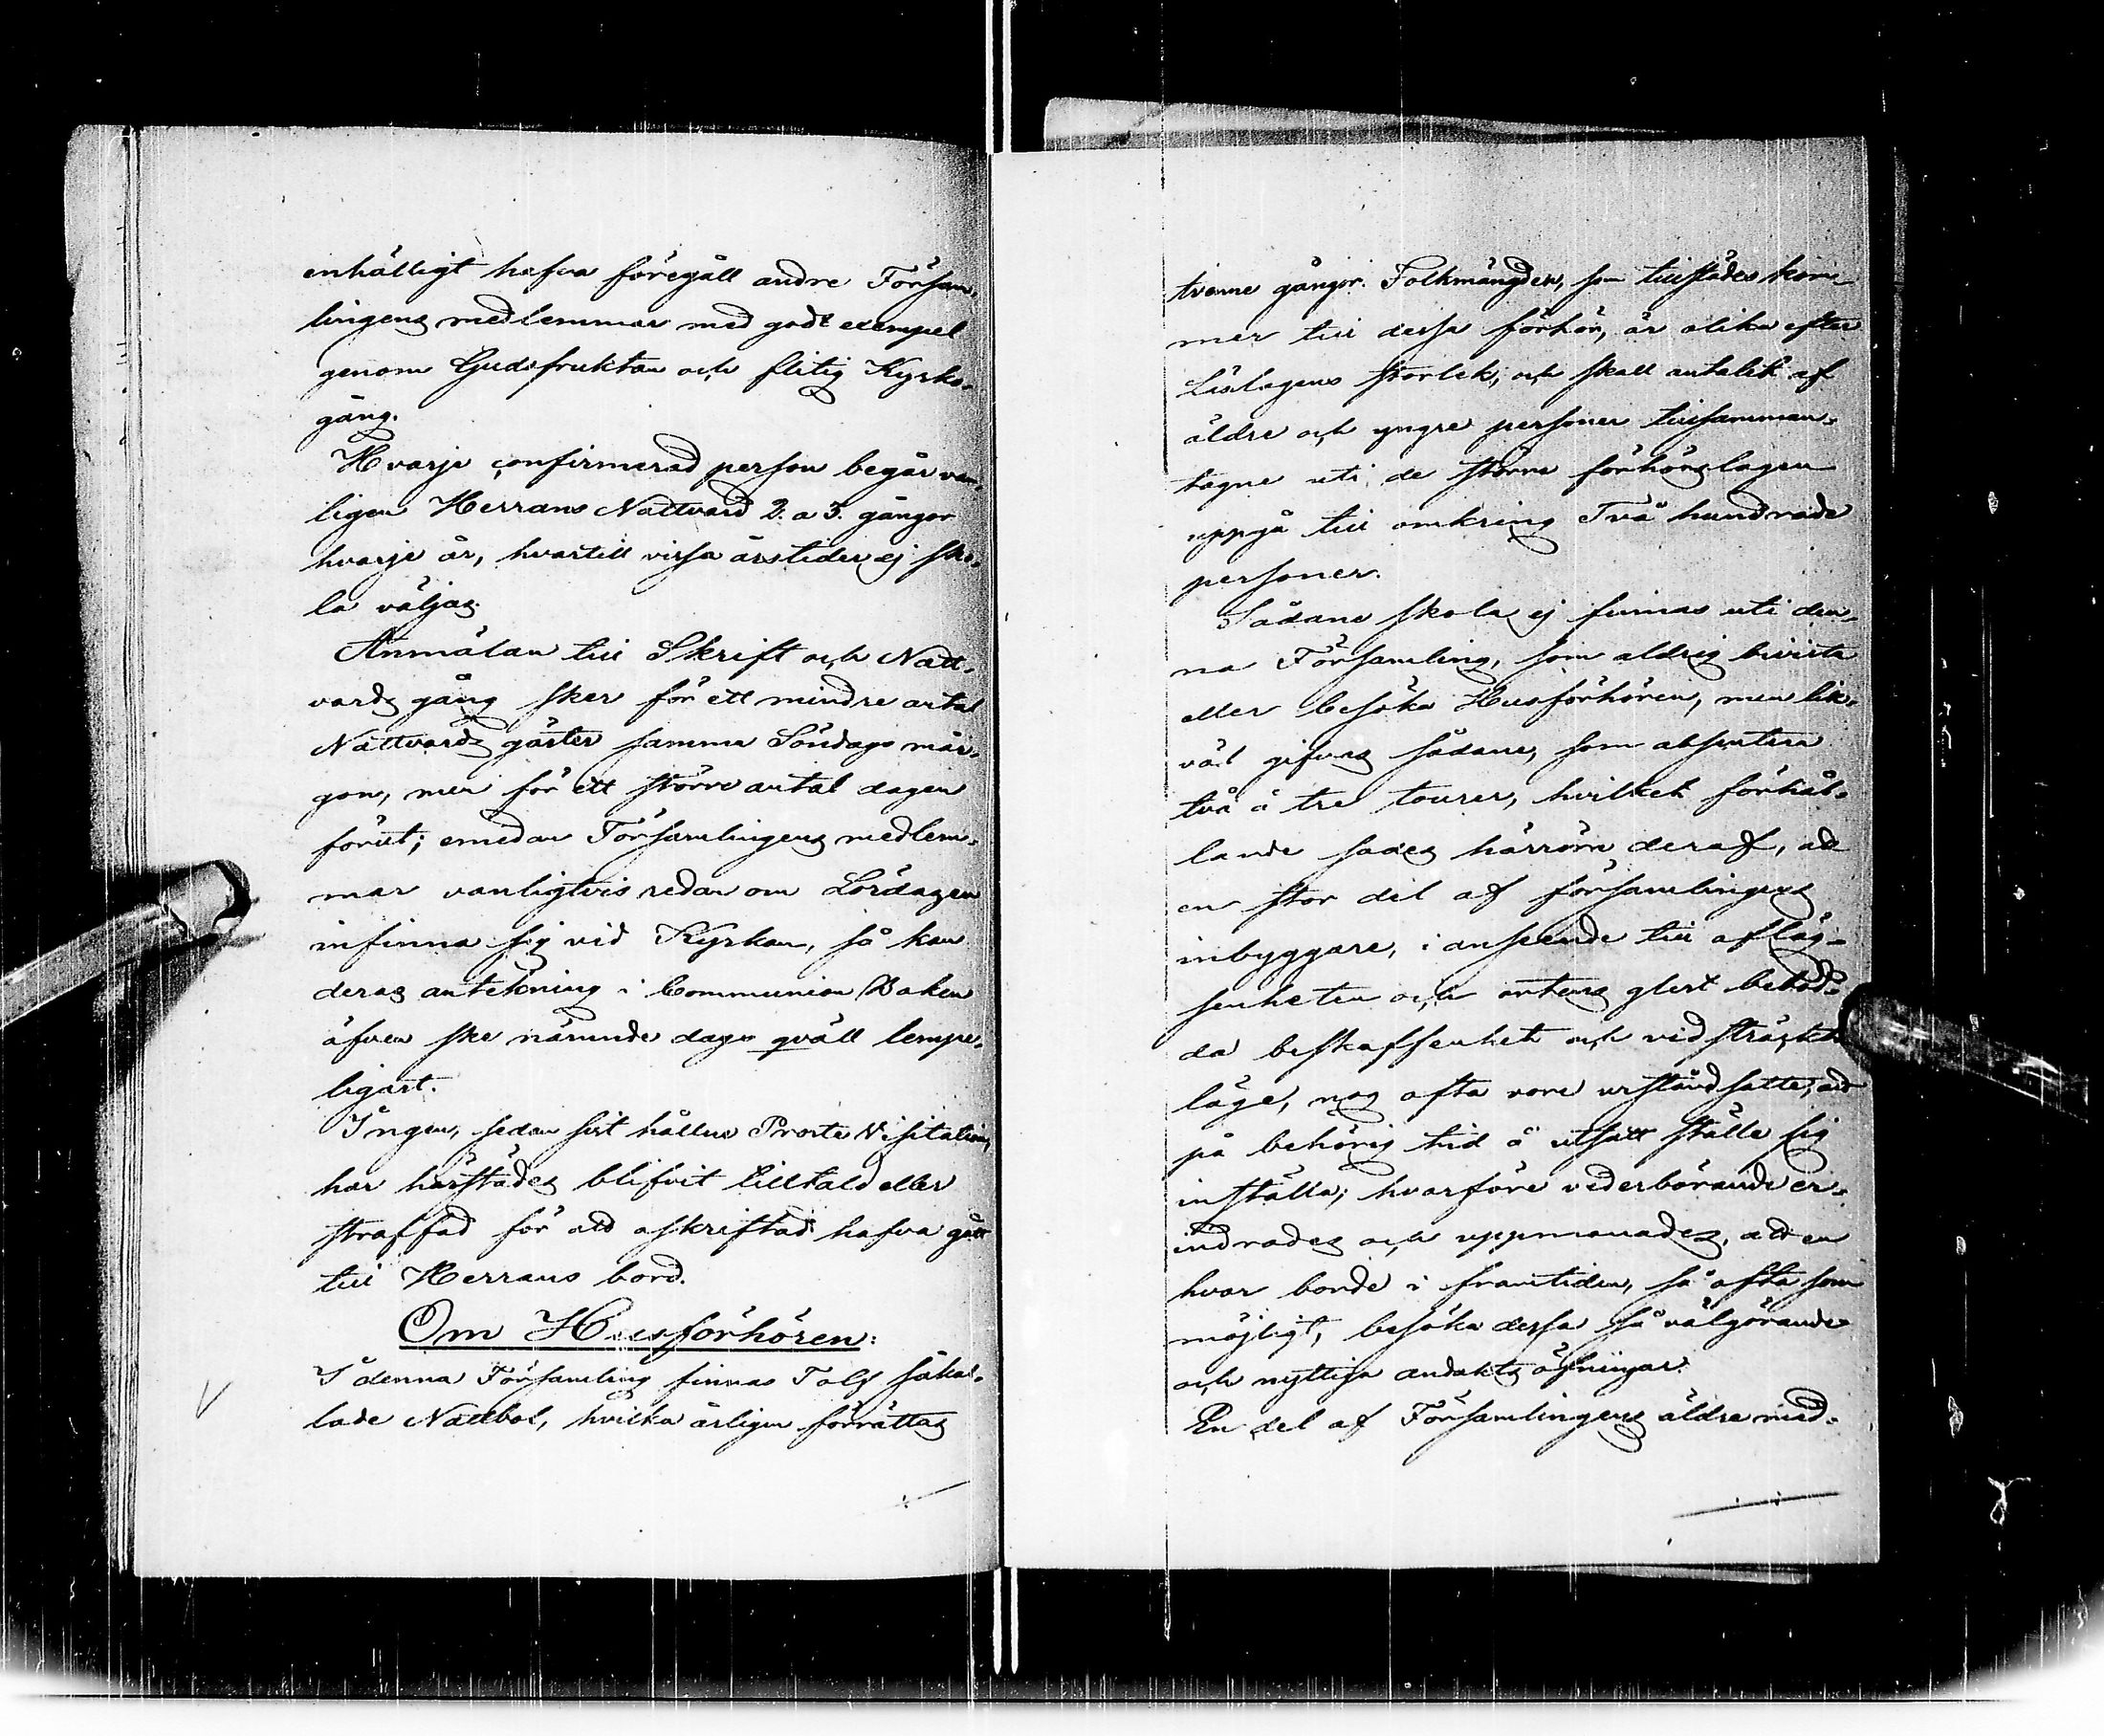 enhälligt hafva föregått andre Försam-
lingens medlemmar med godt exempel
genom Gudsfruktan och flitig Kyrko-
gång.
Hvarje confirmerad person begår van-
ligen Herrans Nattvard 2. a 3. gångor
hvarje år, hvartill vissa årstider ej sko-
la väljas.
Anmälan till Skrift och Natt-
vards gång sker för ett mindre antal
Nattvards gäster samma Söndags mår-
gon, men för ett större antal dagen
förut; emedan Församlingens medlem-
mar vanligtvis redan om Lördagen
infinna sig vid Kyrkan, så kan
deras antekning i Communion Boken
äfven ske nämnde dags qväll lempe-
ligast.
Ingen, sedan sist hållne Proste Visitation,
har härstädes blifvit tilltald eller
straffad för att oskriftad hafva gått
till Herrans bord.
Om Husförhören:
I denna Församling finnas Tolf såkal-
lade Nattbol, hvilka årligen förrättas
tvenne gångor. Folkmängden, som tillstädes kom-
mer till dessa förhör, är olika efter
Läslagens storlek, och skall antalet af
äldre och yngre personer tillsamman-
tagne uti de större förhörslagen
uppgå till omkring Två hundrade
personer.
Sådane skola ej finnas uti den-
na Församling, som aldrig bivista
eller besöka Husförhören, men lik-
väl gifvas sådane, som absentera
två à tre tourer, hvilket förhål-
lande sades härröra deraf, att
en stor del af församlingens
inbyggare, i anseende till afläg-
senheten och ortens glest bebod-
da beskaffenhet och vidsträckta
läge, nog ofta vore urståndsatte, att
på behörig tid å utsatt ställe sig
inställa; hvarföre vederbörande er-
indrades och uppmanades, att en
hvar borde i framtiden, så ofta som
möjligt, besöka dessa så välgörande
och nyttiga andakts öfningar.
En del af Församlingens äldre med-